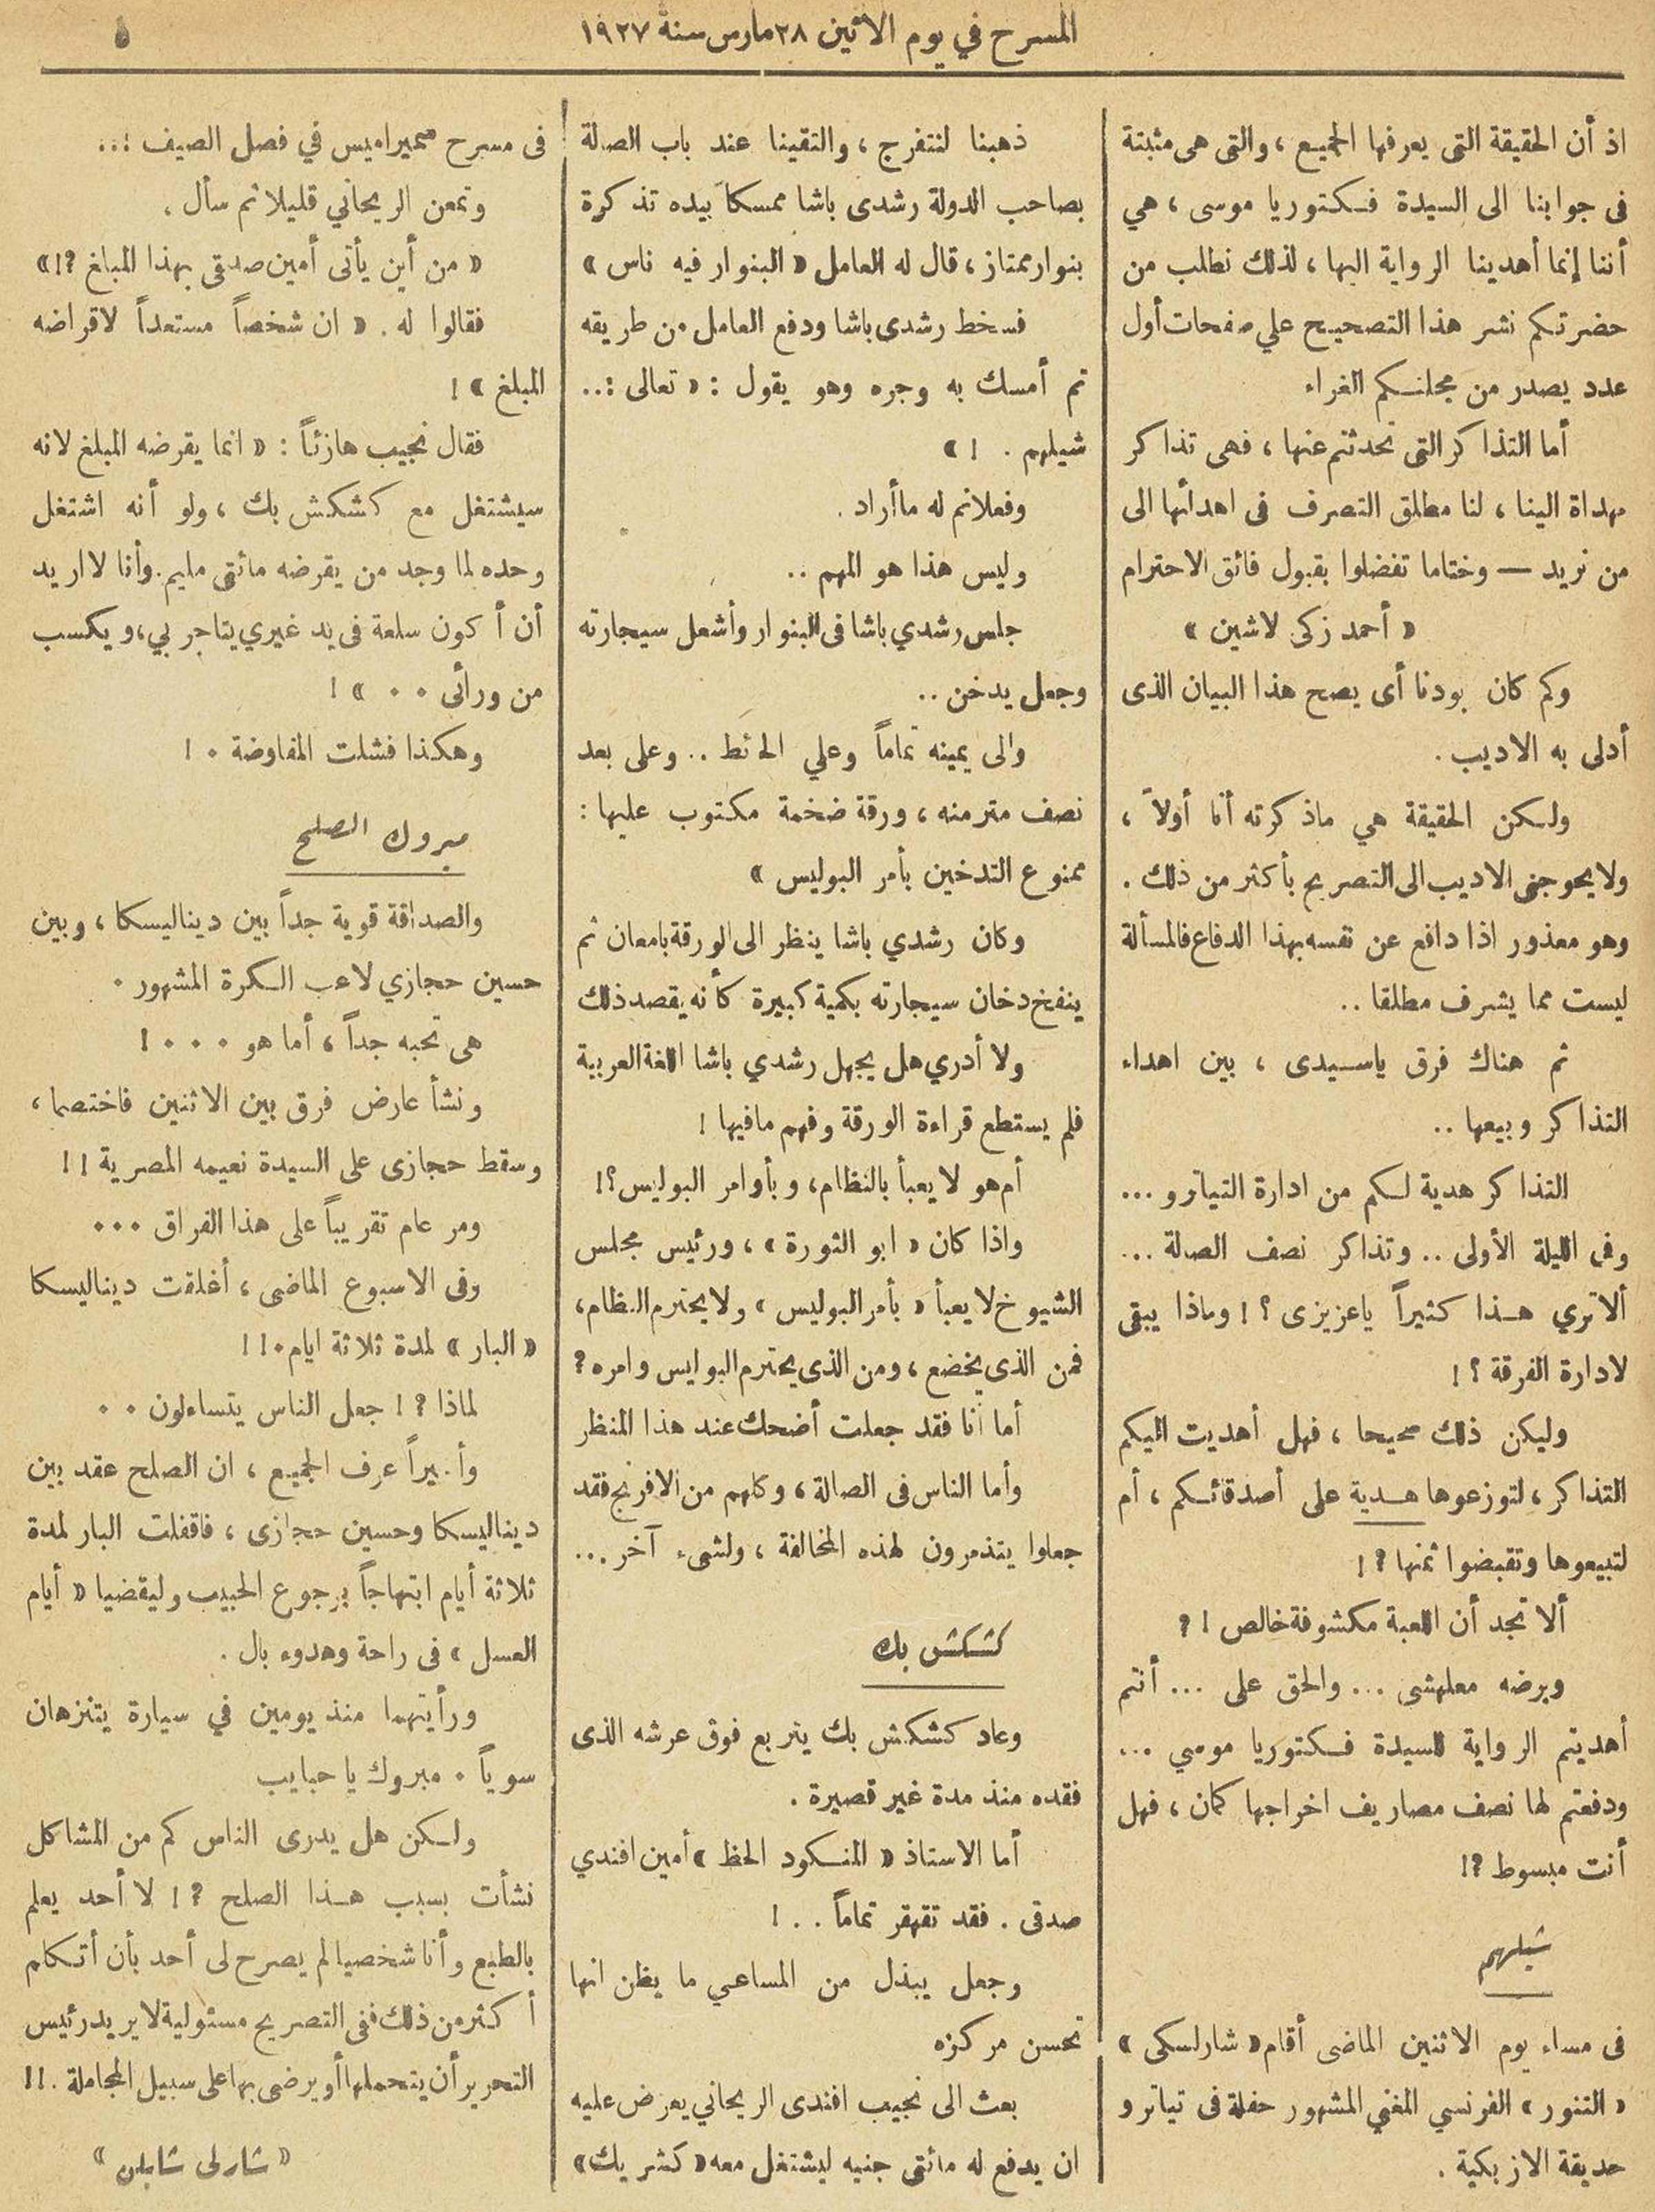 المسرح في يوم الاثنين ٢٨ مارس سنة ١٩٢٧
اذ أن الحقيقة التى يعرفها الجميع ، والتى هى مثبتة
فى جوابنا الى السيدة فكتوريا موسى ، هي
أننا إنما أهدينا الرواية اليها ، لذلك نطلب من
حضرتكم نشر هذا التصحيح علي صفحات أول
عدد يصدر من مجلتكم الغراء
أما التذاكر التى تحدثتم عنها ، فهى تذاكر
مهداة الينا ، لنا مطلق التصرف فى اهدائها الى
من نريد — وختاما تفضلوا بقبول فائق الاحترام
« أحمد زكى لاشين »
وكم كان بودنا أى يصح هذا البيان الذى
أدلى به الاديب .
ولكن الحقيقة هي ماذكرته أنا أولاً ،
ولا يحوجنى الاديب الى التصريح بأكثر من ذلك .
وهو معذور اذا دافع عن نفسه بهذا الدفاع فالمسألة
ليست مما يشرف مطلقا ..
ثم هناك فرق ياسيدى ، بين اهداء
التذاكر وبيعها ..
التذاكر هدية لكم من ادارة التياترو ...
وفى الليلة الأولى .. وتذاكر نصف الصالة ...
ألا تري هذا كثيراً ياعزيزى ؟ ! وماذا يبقى
لادارة الفرقة ؟ !
وليكن ذلك صحيحا ، فهل أهديت اليكم
التذاكر ، لتوزعوها هدية على أصدقائكم ، أم
لتبيعوها وتقبضوا ثمنها ? !
ألا تجد أن اللعبة مكشوفة خالص ! ?
وبرضه معلهشى ... والحق على ... أنتم
أهديتم الرواية للسيدة فكتوريا موسي ...
ودفعتم لها نصف مصاريف اخراجها كمان ، فهل
أنت مبسوط ?!
شيلهم
فى مساء يوم الاثنين الماضى أقام « شارلسكى »
« التنور » الفرنسي المغني المشهور حفلة فى تياترو
حديقة الازبكية .
ذهبنا لنتفرج ، والتقينا عند باب الصالة
بصاحب الدولة رشدى باشا ممسكا بيده تذكرة
بنوار ممتاز ، قال له العامل « البنوار فيه ناس »
فسخط رشدى باشا ودفع العامل من طريقه
ثم أمسك به وجره وهو يقول : « تعالى :..
شيلهم . ! »
وفعلا تم له ما أراد .
وليس هذا هو المهم ..
جلس رشدي باشا فى البنوار وأشعل سيجارته
وجعل يدخن ..
والى يمينه تماماً وعلي الحائط .. وعلى بعد
نصف متر منه ، ورقة ضخمة مكتوب عليها :
ممنوع التدخين بأمر البوليس »
وكان رشدي باشا ينظر الى الورقة بامعان ثم
ينفخ دخان سيجارته بكمية كبيرة كأنه يقصد ذلك
ولا أدري هل يجهل رشدي باشا اللغة العربية
فلم يستطع قراءة الورقة وفهم مافيها !
أم هو لا يعبأ بالنظام ، وبأوامر البوليس ؟!
واذا كان « ابو الثورة » ، ورئيس مجلس
الشيوخ لا يعبأ « بأمر البوليس » ولا يحترم النظام ،
فمن الذى يخضع ، ومن الذى يحترم البوليس وامره ?
أما أنا فقد جعلت أضحك عند هذا المنظر
وأما الناس فى الصالة ، وكلهم من الافرنج فقد
جعلوا يتذمرون لهذه المخالفة ، ولشىء آخر ...
كشكش بك
وعاد كشكش بك يتربع فوق عرشه الذى
فقده منذ مدة غير قصيرة .
أما الاستاذ « المنكود الحظ » أمين افندي
صدقى . فقد تقهقر تماماً . . !
وجعل يبذل من المساعي ما يظن انها
تحسن مركزه
بعث الى نجيب افندى الريحاني يعرض عليه
ان يدفع له مائتى جنيه ليشتغل معه « كشريك »
فى مسرح سميراميس في فصل الصيف :..
وتمعن الريحاني قليلا ثم سأل ،
« من أين يأتى أمين صدقى بهذا المبلغ ?! »
فقالوا له . « ان شخصاً مستعداً لاقراضه
المبلغ » !
فقال نجيب هازئاً : « انما يقرضه المبلغ لانه
سيشتغل مع كشكش بك ، ولو أنه اشتغل
وحده لما وجد من يقرضه مائتى مليم . وأنا لا اريد
أن أكون سلعة فى يد غيري يتاجر بي ، ويكسب
من ورائى . . » !
وهكذا فشلت المفاوضة . !
مبروك الصلح
والصداقة قوية جداً بين ديناليسكا ، وبين
حسين حجازي لاعب الكرة المشهور .
هى تحبه جداً ، أما هو . . . !
ونشأ عارض فرق بين الاثنين فاختصما ،
وسقط حجازى على السيدة نعيمه المصرية !!
ومر عام تقريباً على هذا الفراق ...
وفى الاسبوع الماضى ، أغلقت ديناليسكا
« البار » لمدة ثلاثة ايام .!!
لماذا ? ! جعل الناس يتساءلون . .
وأخيراً عرف الجميع ، ان الصلح عقد بين
ديناليسكا وحسين حجازى ، فاقفلت البار لمدة
ثلاثة أيام ابتهاجاً برجوع الحبيب وليقضيا « أيام
العسل » فى راحة وهدوء بال .
ورأيتهما منذ يومين في سيارة يتنزهان
سوياً . مبروك يا حبايب
ولكن هل يدرى الناس كم من المشاكل
نشأت بسبب هذا الصلح ? ! لا أحد يعلم
بالطبع وأنا شخصيا لم يصرح لى أحد بأن أتكلم
أكثر من ذلك ففى التصريح مسئولية لا يريد رئيس
التحرير أن يتحملها أو يرضى بها على سبيل المجاملة .!!
« شارلى شابلن »